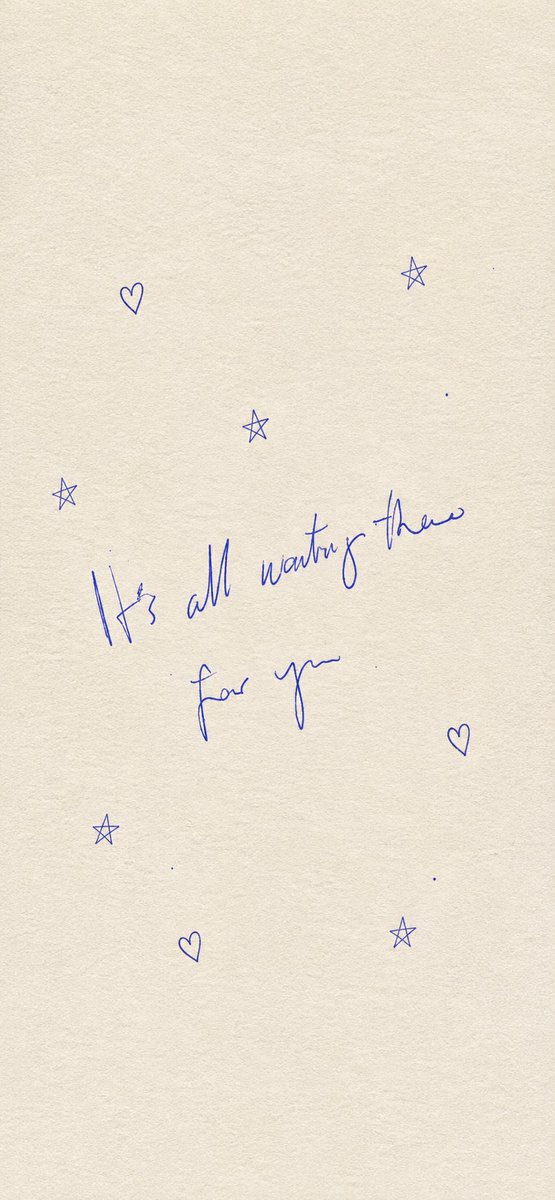 It's all waiting there
for you